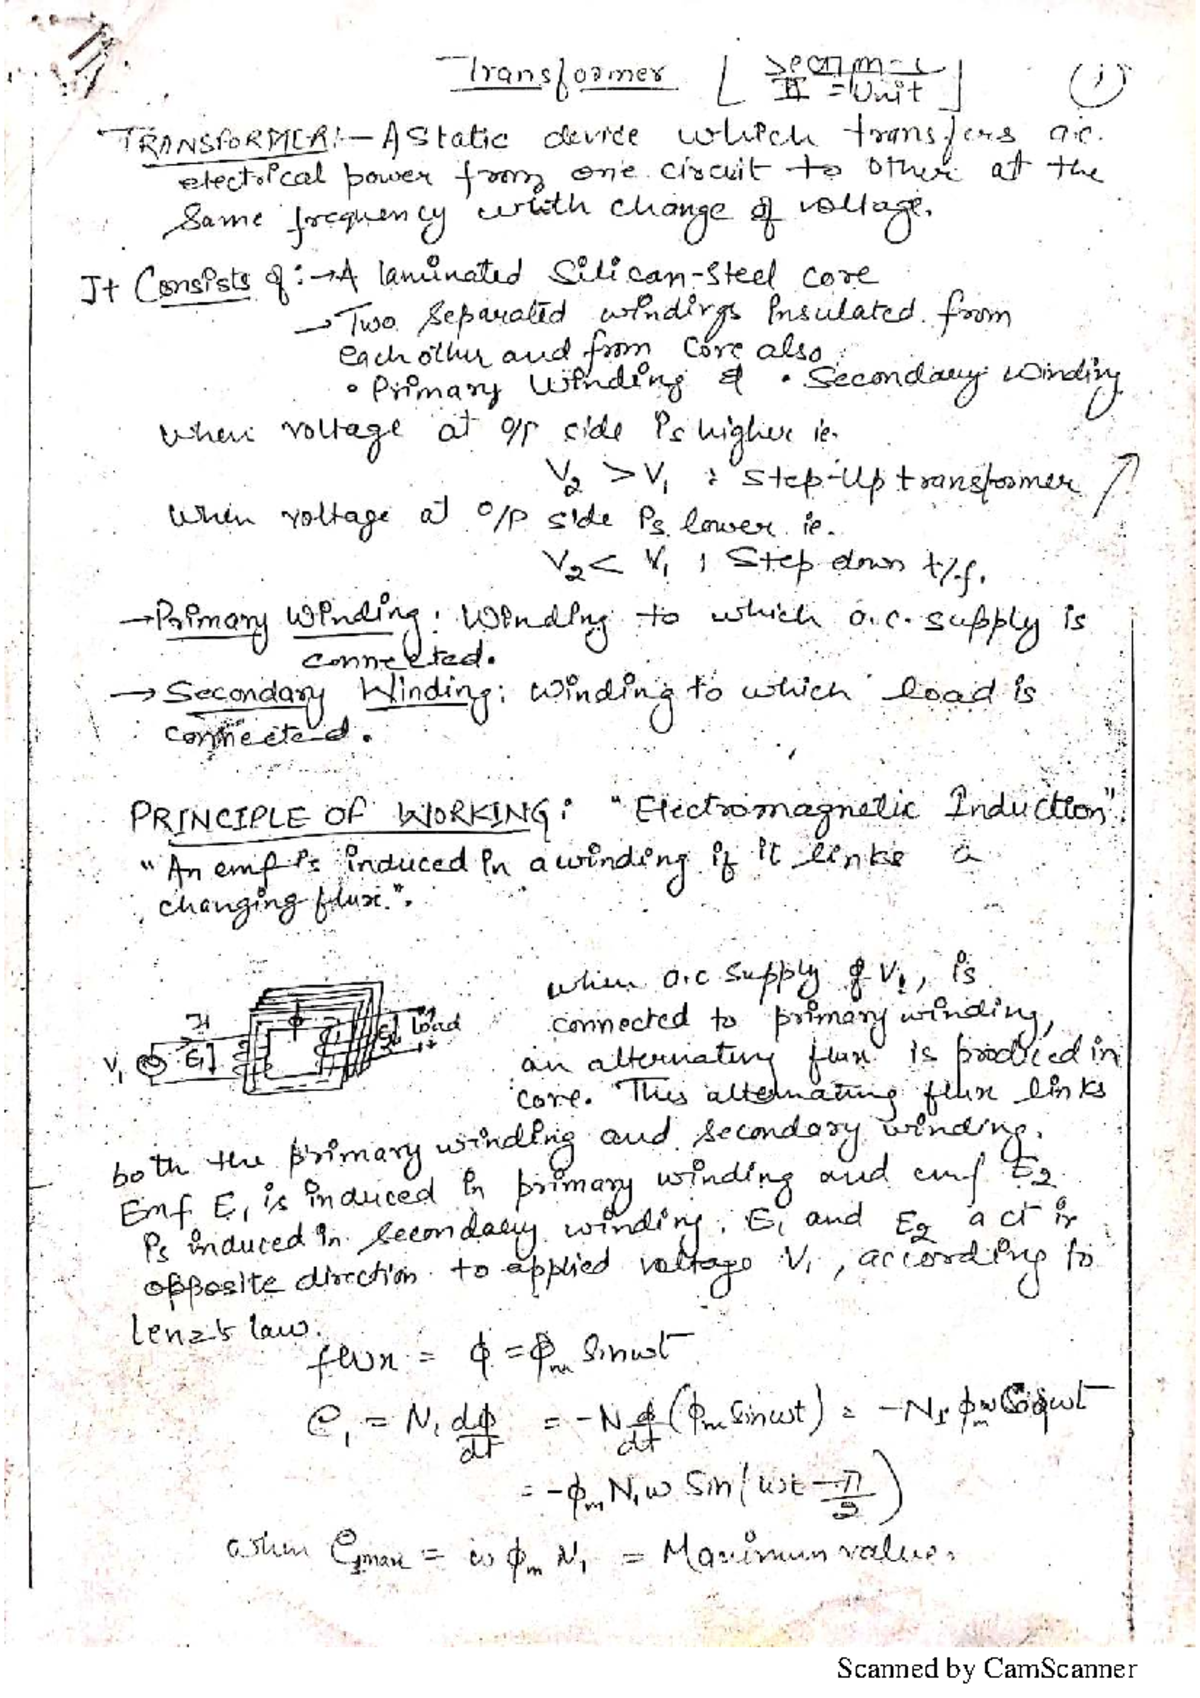 Transformer [ Section-C
II = Unit ] (1)
TRANSFORMER:- A Static device which transfers a.c.
electrical power from one circuit to other at the
Same frequency with change of voltage.
It Consists of :→ A laminated Silican-Steel core
→ Two Separated windings Insulated from
each other and from core also
• Primary Winding & • Secondary Winding
When voltage at o/p side is higher ie.
V2 > V1 : Step-Up transformer
When voltage at o/p side is lower ie.
V2 < V1 ; Step down t/f.
→ Primary Winding: Winding to which a.c. supply is
connected.
→ Secondary Winding: Winding to which load is
connected.
PRINCIPLE OF WORKING: "Electromagnetic Induction".
"An emf is induced in a winding if it links a
changing flux.".
when a.c supply of V1, is
connected to primary winding,
an alternating flux is produced in
core. This alternating flux links
V1 I1 E1 φ E2 load
both the primary winding and secondary winding.
Emf E1 is induced in primary winding and emf E2
is induced in Secondary winding. E1 and E2 act in
opposite direction to applied voltage V1, according to
Lenz's law.
flux = φ = φm Sinωt
e1 = N1 dφ/dt = -N d/dt (φm Sinωt) = -N1 φm ω Cosωt
= -φm N1 ω Sin(ωt - π/2)
when e1max = ω φm N1 = Maximum value.
Scanned by CamScanner